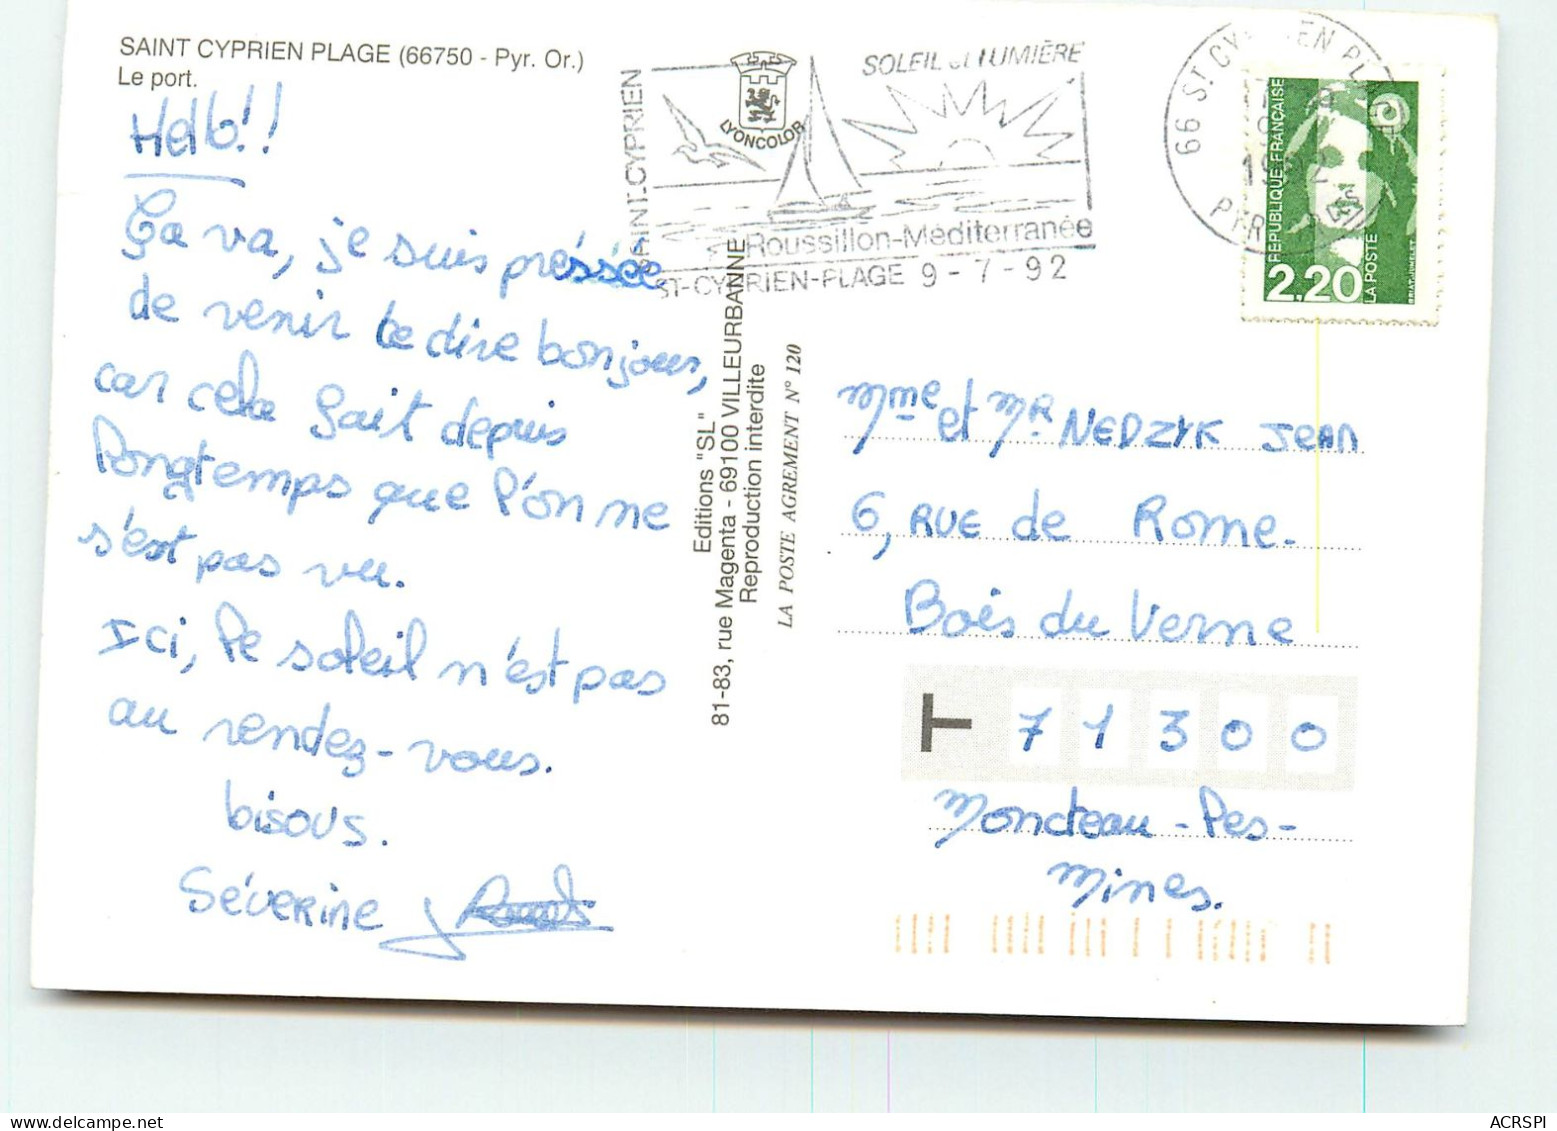 SAINT CYPRIEN PLAGE (66750 - Pyr. Or.)
Le port.
Hello!!
Ça va, je suis pressée
de venir te dire bonjour,
car cela fait depuis
longtemps que l'on ne
s'est pas vu.
Ici, le soleil n'est pas
au rendez-vous.
bisous.
Séverine
SAINT-CYPRIEN
LYONCOLOR
SOLEIL et LUMIÈRE
Roussillon-Méditerranée
ST-CYPRIEN-PLAGE 9-7-92
66 ST CYPRIEN PLAGE
1992
REPUBLIQUE FRANÇAISE
2,20
LA POSTE
BRIAT-JUMELET
Editions "SL"
81-83, rue Magenta - 69100 VILLEURBANNE
Reproduction interdite
LA POSTE AGREMENT N° 120
Mme et Mr NEDZYK Jean
6, RUE de Rome.
Bois du Verne
71300
Montceau-les-
Mines.
ACRSPI